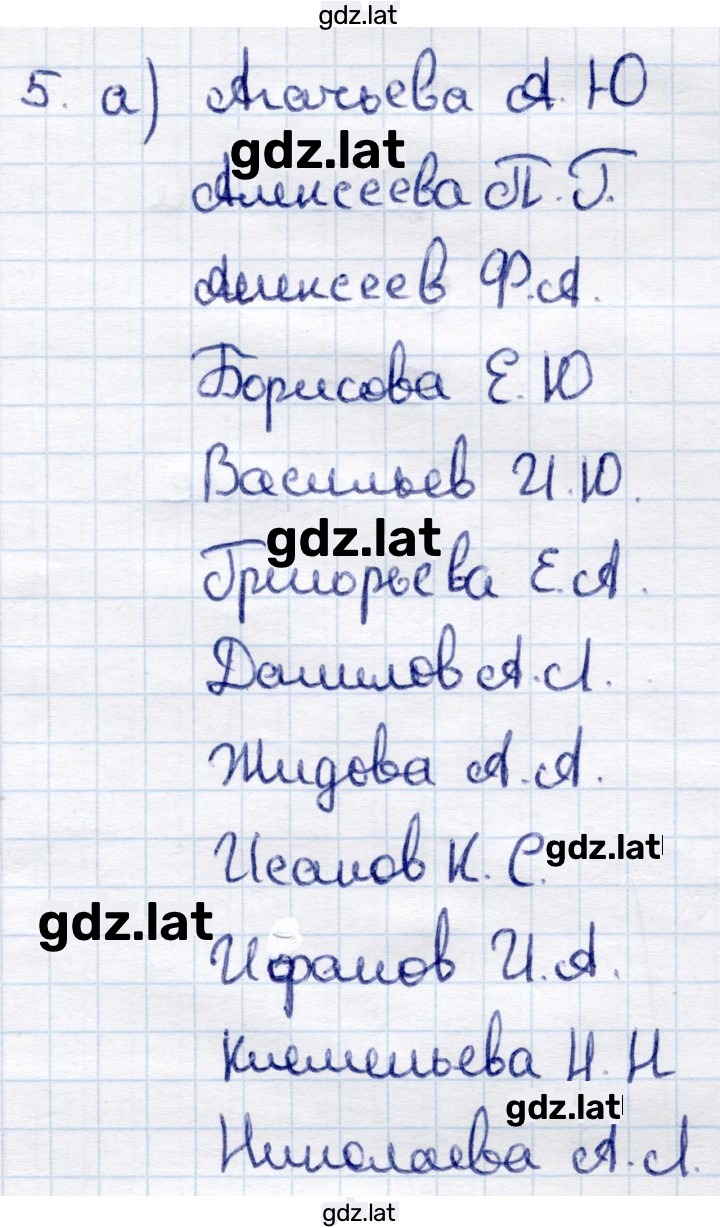 gdz.lat
5. а) Агачьева А. Ю
gdz.lat
Алексеева П. Г.
Алексеев Ф.А.
Борисова Е. Ю
Васильев И. Ю.
gdz.lat
Григорьева Е.А.
Данилов А. Л.
Жидова А. А.
Исаков К. С.
gdz.lat
gdz.lat
И. А.
Н. Н
gdz.lat
Николаева А. Л.
gdz.lat